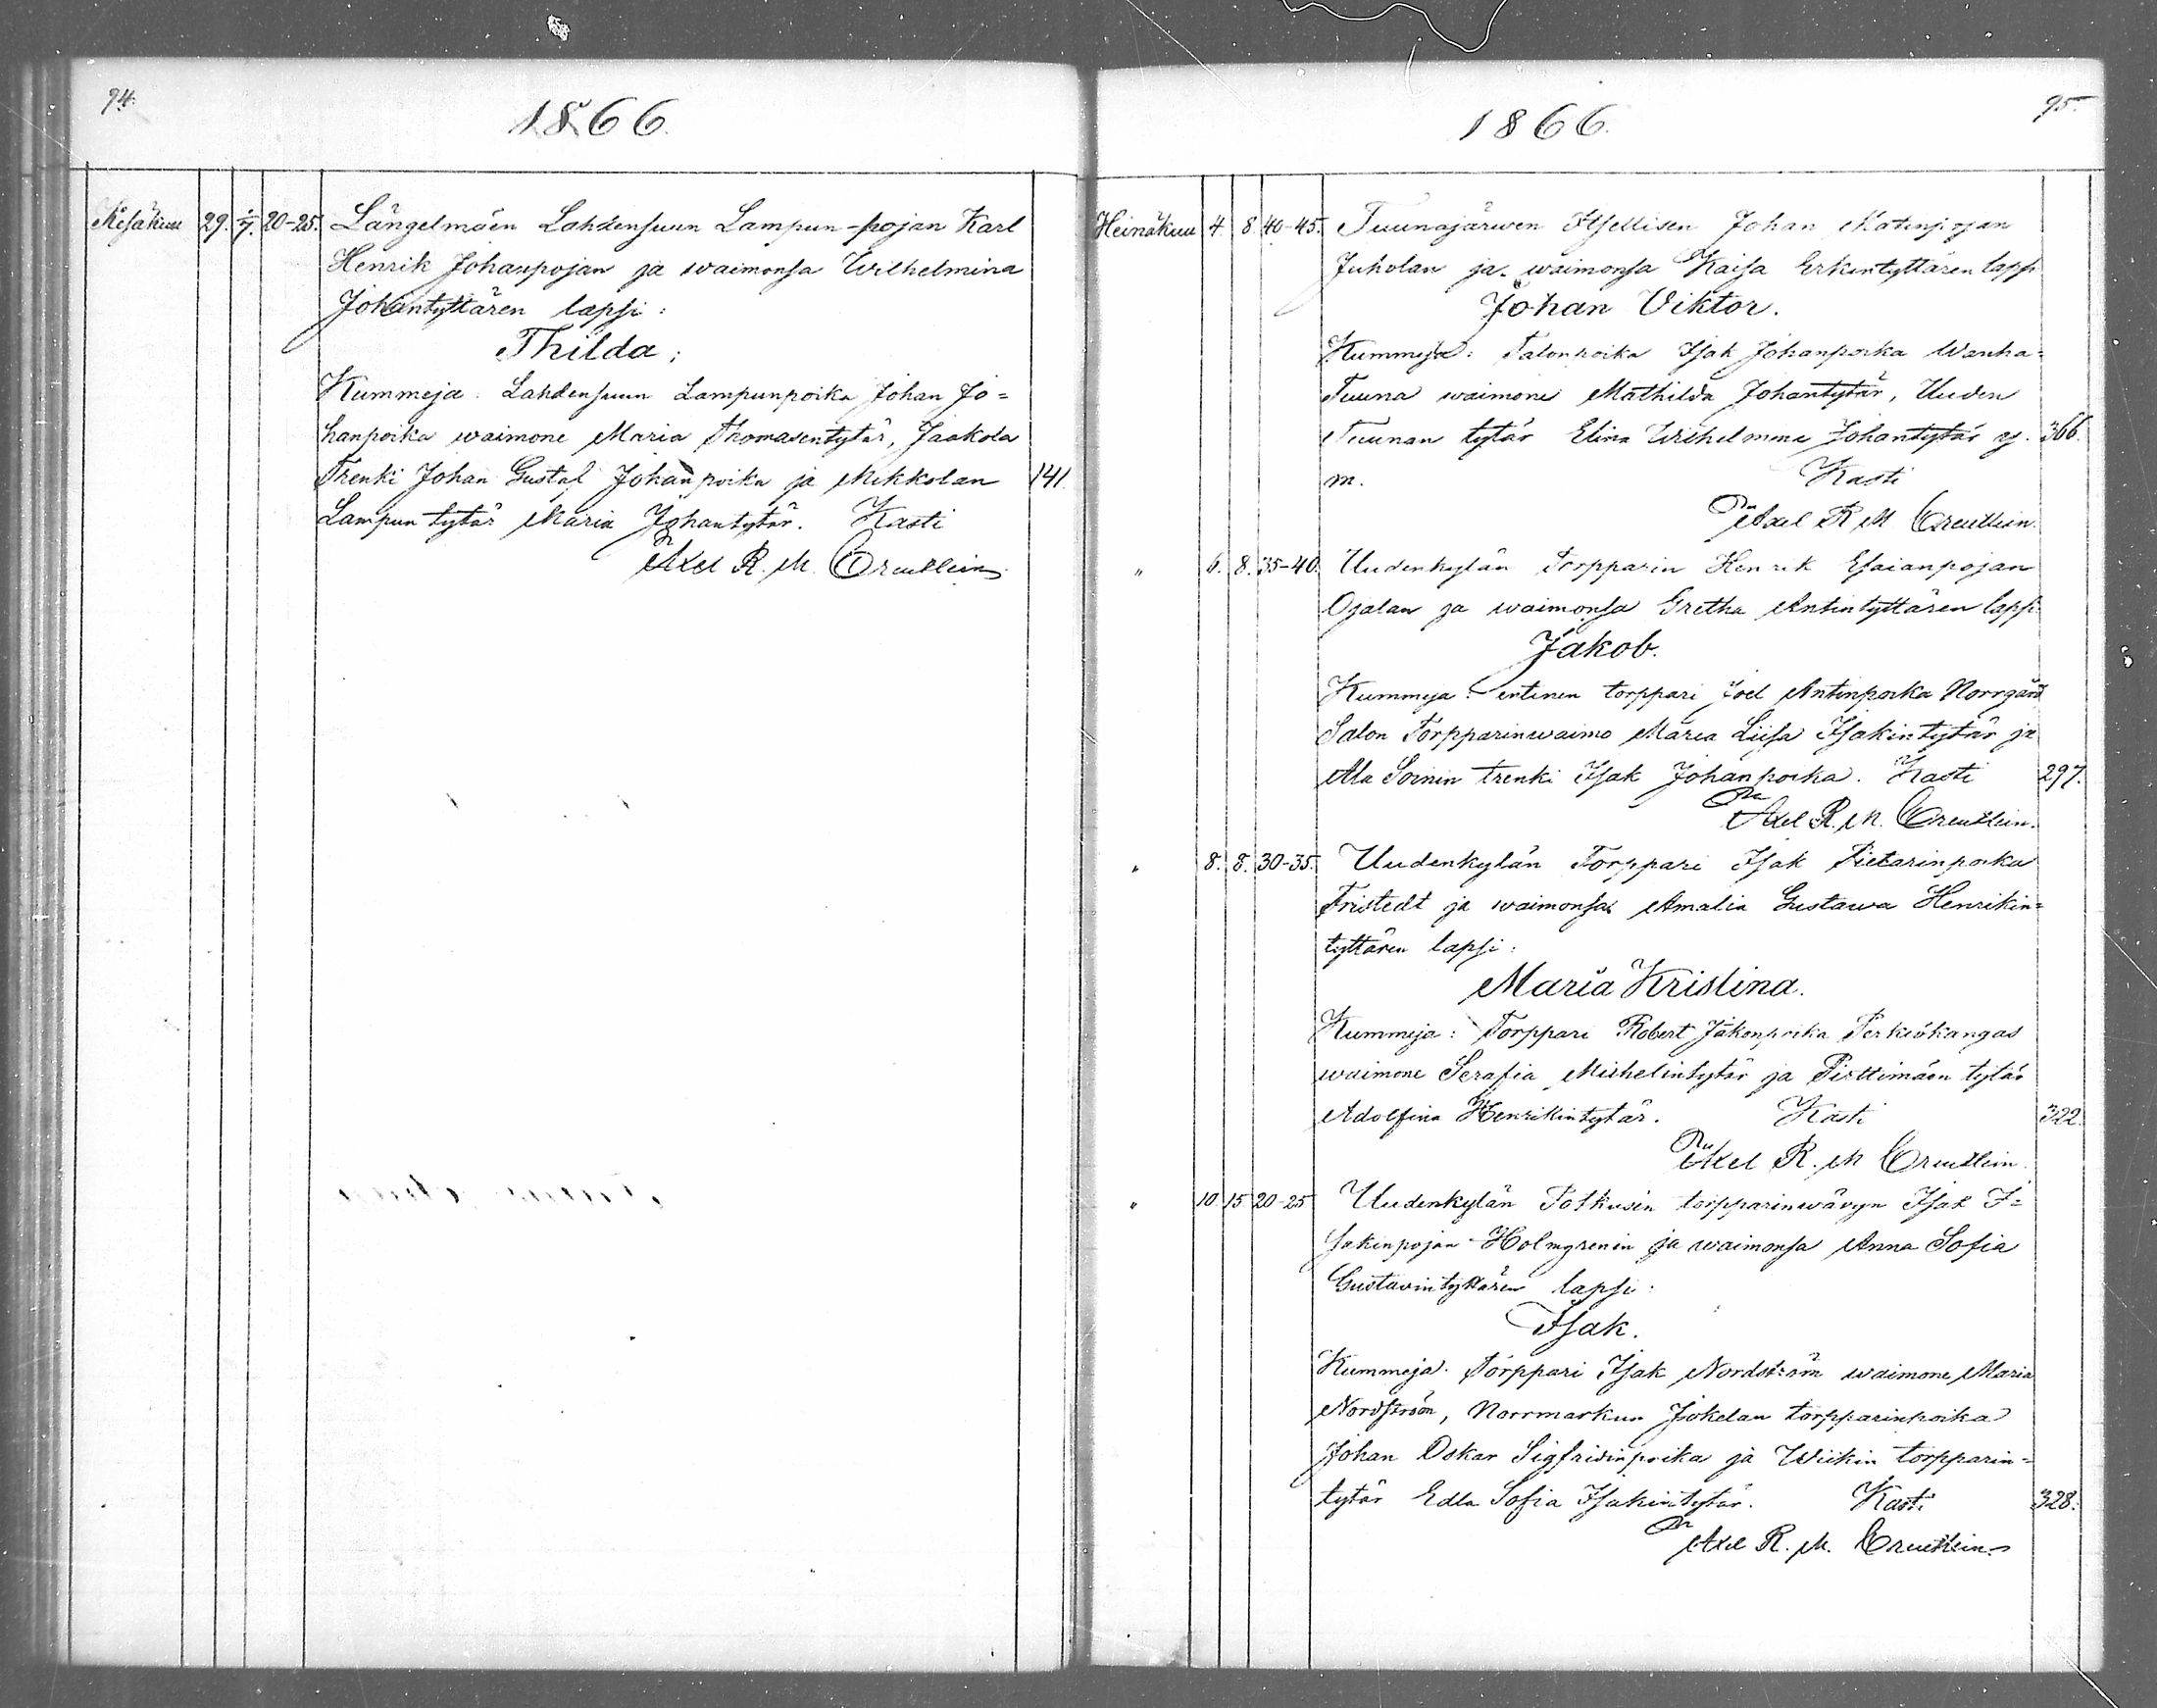 94.
1866.
Kesäkuu 29. 1/7. 20-25. Längelmäen Lahdensuun Lampun-pojan Karl
Henrik Johanpojan ja waimonsa Wilhelmina
Johantyttären lapsi:
Thilda;
Kummeja: Lahdensuun Lampunpoika Johan Jo=
hanpoika waimone Maria Thomasentytär, Jaakola
Trenki Johan Gustaf Johanpoika ja Mikkolan 141.
Lampun tytär Maria Johantytär. Kasti
Axel R. M. Creutlein
95.
1866.
Heinäkuu 4. 8. 40-45. Tuunajärwen Itsellisen Johan Matinpojan
Juholan ja waimonsa Kaisa Erkintyttären laps
Johan Viktor.
Kummeja: Talonpoika Isak Johanpoika Wanha-
Tuuna waimone Mathilda Johantytär, Uuden
Tuunan tytär Elina Wilhelmina Johantytär y. 366.
m. Kasti
Axel R M Creutlein.
" 6. 8. 35-40. Uudenkylän Torpparin Henrik Esaianpojan
Ojalan ja waimonsa Gretha Antintyttären laps.
Jakob.
Kummeja: entinen torppari Joel Antinpoika Norrgård
Salon Torpparinwaimo Maria Liisa Isakintytär ja
Ala Soinin trenki Isak Johanpoika. Kasti 297.
Axel R. M. Creutlein.
" 8. 8. 30-35. Uudenkylän Torppari Isak Pietarinpoika
Fristedt ja waimonsa Amalia Gustawa Henrikin=
tyttären lapsi:
Maria Kristina.
Kummeja: Torppari Robert Jakonpoika Perkiökangas
waimone Serafia Mihelintytär ja Pirttimäen tytär
Adolfina Henrikintytär. Kasti 322.
Axel R. M Creutlein.
" 10. 15. 20-25 Uudenkylän torpparinwävyn Isak I=
sakinpojan Holmgrenin ja waimonsa Anna Sofia
Gustavintyttären lapsi:
Isak.
Kummeja: Torppari Isak Nordström waimone Maria
Nordström, Norrmarkun Jokelan torpparinpoika
Johan Oskar Sigfridinpoika ja Wiikin torpparin=
tytär Edla Sofia Isakintytär. Kasti 328.
Axel R. M. Creutlein